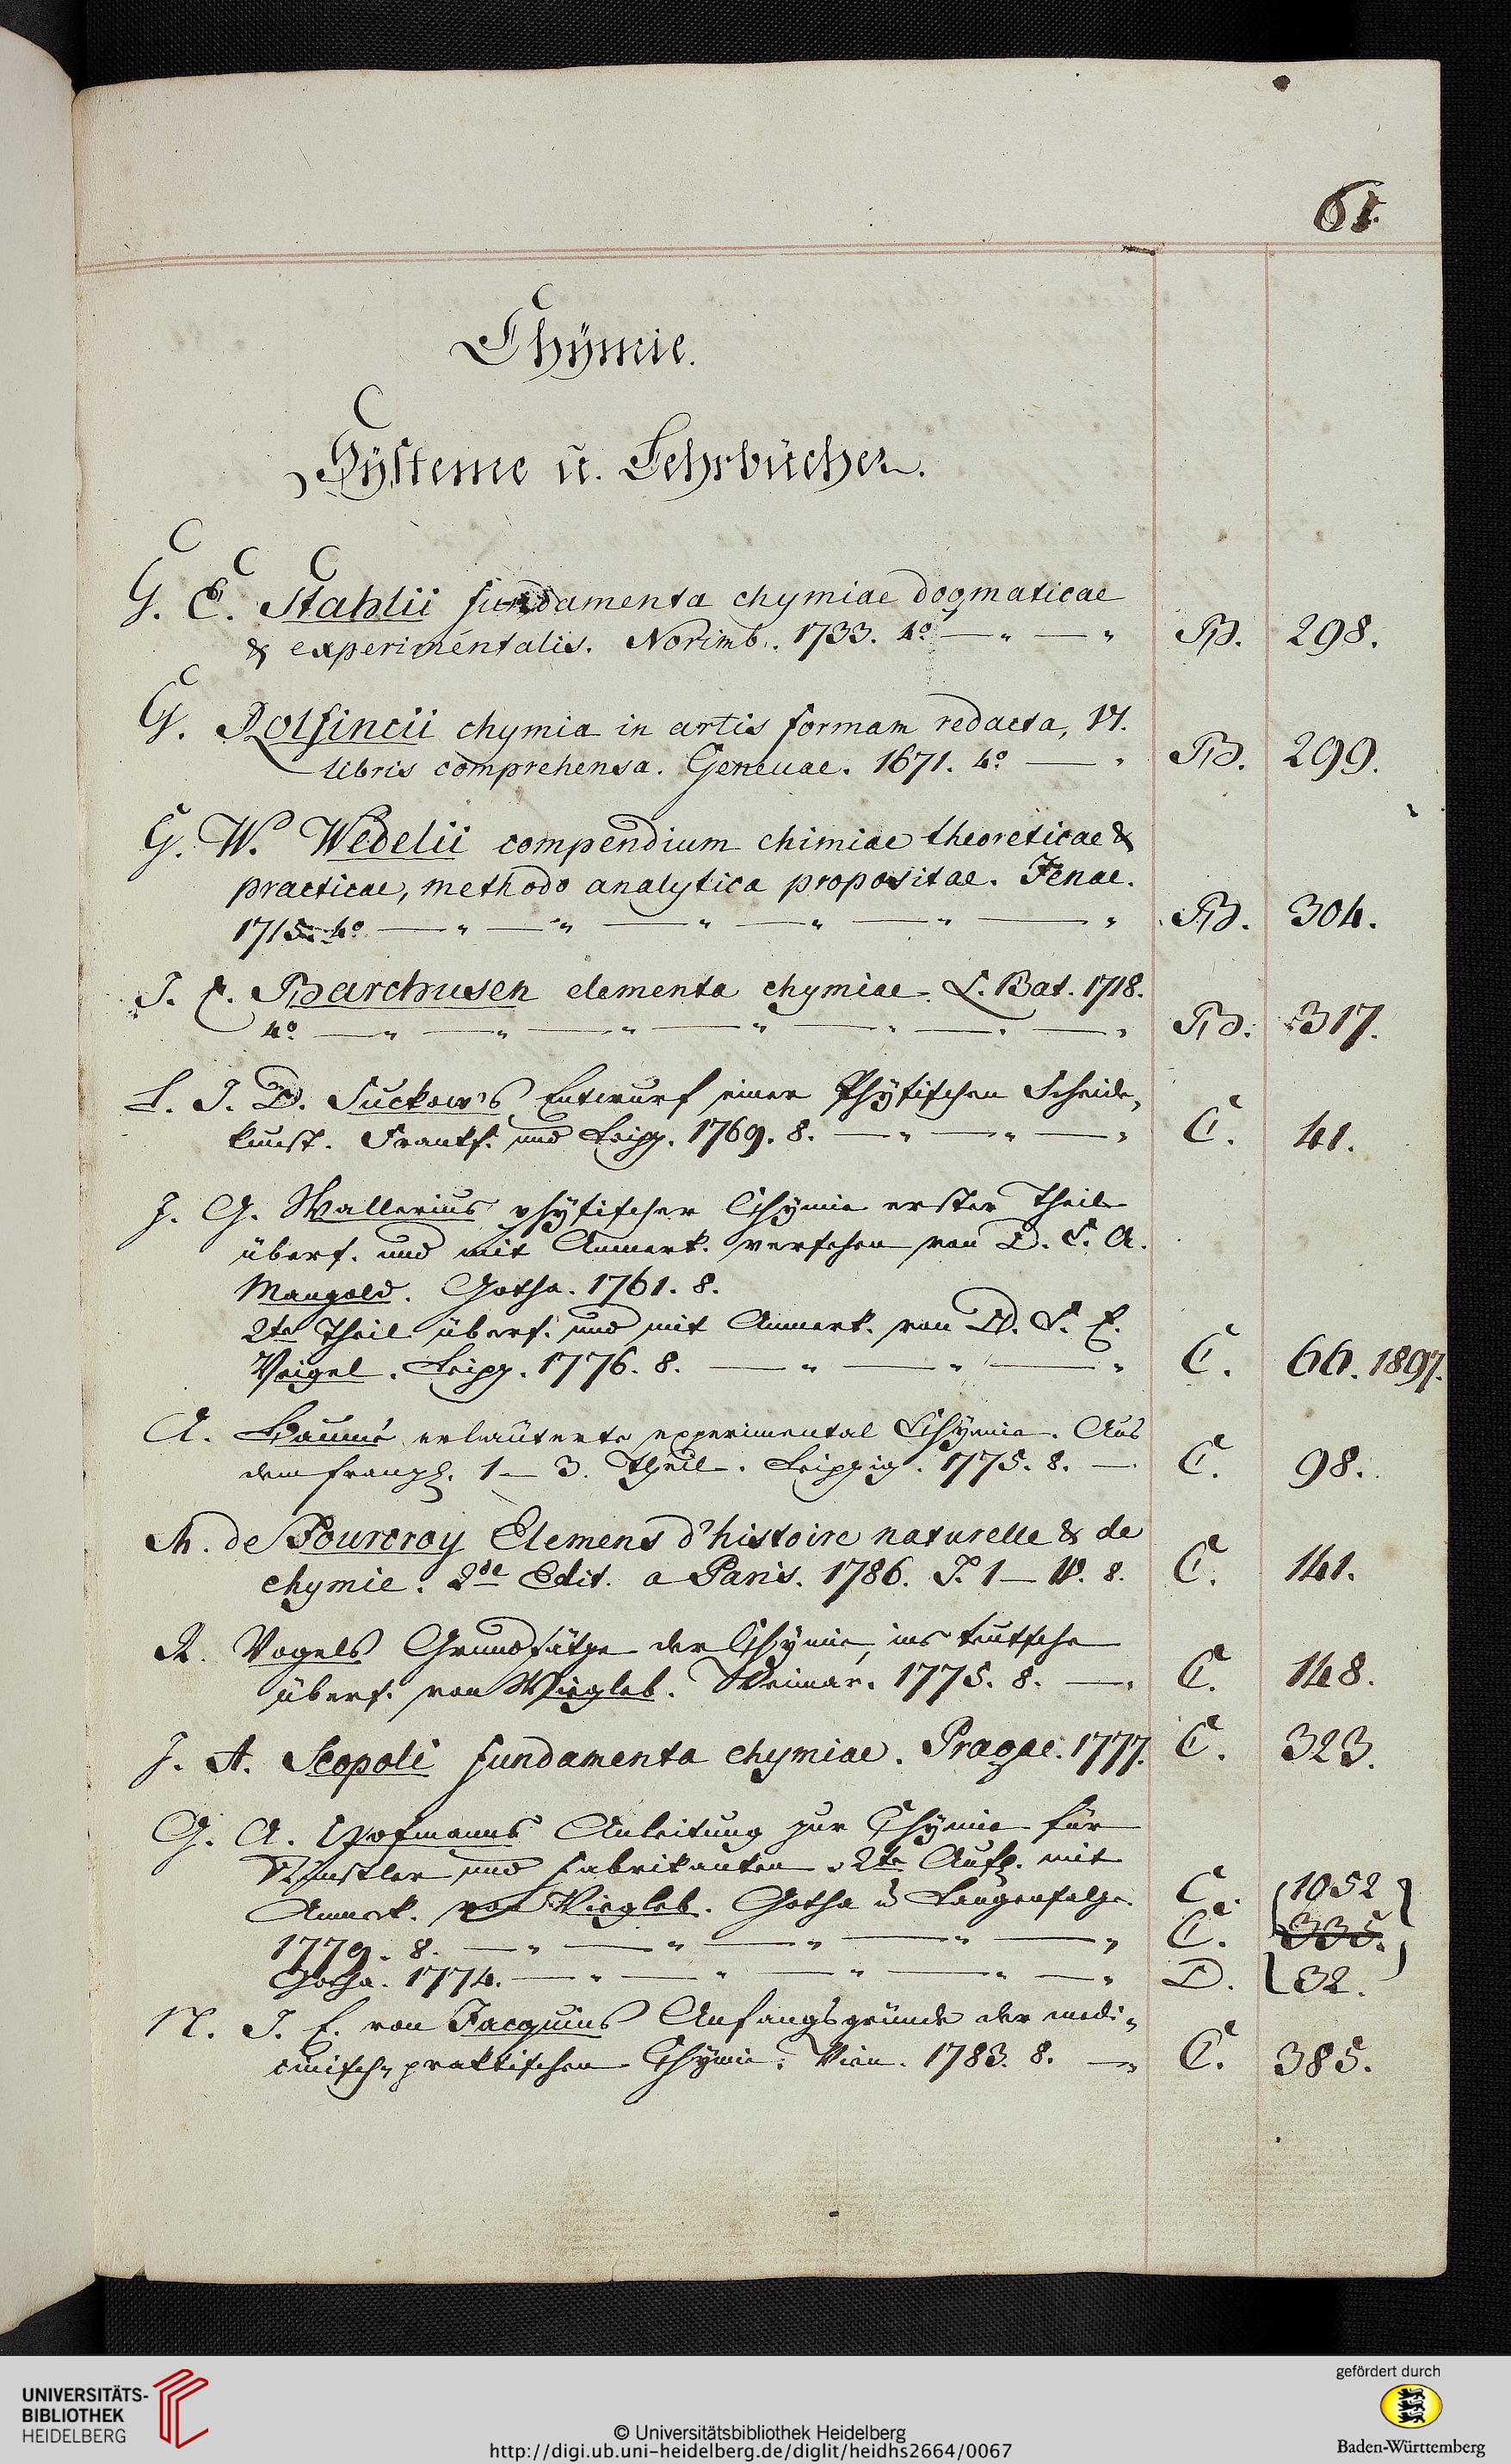 61.
Chÿmie.
Sÿsteme u. Lehrbücher.
G. E. Stahlii fundamenta chymiae dogmaticae
& experimentalis. Norimb. 1733. 4° — " — " B. 298.
G. Rolfincii chymia in artis formam redacta, VI.
libris comprehensa. Genevae. 1671. 4° — " B. 299.
G. W. Wedelii compendium chimiae theoreticae &
practicae, methodo analytica propositae. Jenae.
1715. 4° — " — " — " — " — " — " B. 304.
J. C. Barchusen elementa chymiae. L. Bat. 1718.
4° — " — " — " — " — " — " — " B. 317.
L. J. D. Suckow's Entwurf einer Phÿsischen Scheide-
kunst. Frankf. und Leipz. 1769. 8. — " — " — " C. 41.
J. G. Wallerius phÿsischer Chÿmie erster Theil
übers. und mit Anmerk. versehen von D. C. A.
Mangold. Gotha. 1761. 8.
2ter Theil übers. und mit Anmerk. von D. C. E.
Weigel. Leipz. 1776. 8. — " — " — " C. 66. 1897.
A. Baumé erläuterte experimental Chÿmie. Aus
dem franz. 1 — 3. Theil. Leipzig. 1775. 8. — C. 98.
M. de Fourcroy Elemens d'histoire naturelle & de
chymie. 2de Edit. a Paris. 1786. T. 1 — IV. 8. C. 141.
R. Vogels Grundsätze der Chÿmie, ins teutsche
übers. von Wiegleb. Weimar. 1775. 8. — " C. 148.
J. A. Scopoli fundamenta chymiae. Pragae. 1777. C. 323.
G. A. Hofmanns Anleitung zur Chÿmie für
Künstler und Fabrikanten. 2te Aufl. mit
Anmerk. von Wiegleb. Gotha u Langensalze. C. 1052
1779. 8. — " — " — " — " — " C. 335.
Gotha. 1774. — " — " — " — " — " D. 32.
N. J. E. von Jacquins Anfangsgründe der medi-
cinisch-praktischen Chÿmie. Wien. 1783. 8. — " C. 385.
UNIVERSITÄTS-
BIBLIOTHEK
HEIDELBERG
© Universitätsbibliothek Heidelberg
http://digi.ub.uni-heidelberg.de/diglit/heidhs2664/0067
gefördert durch
Baden-Württemberg